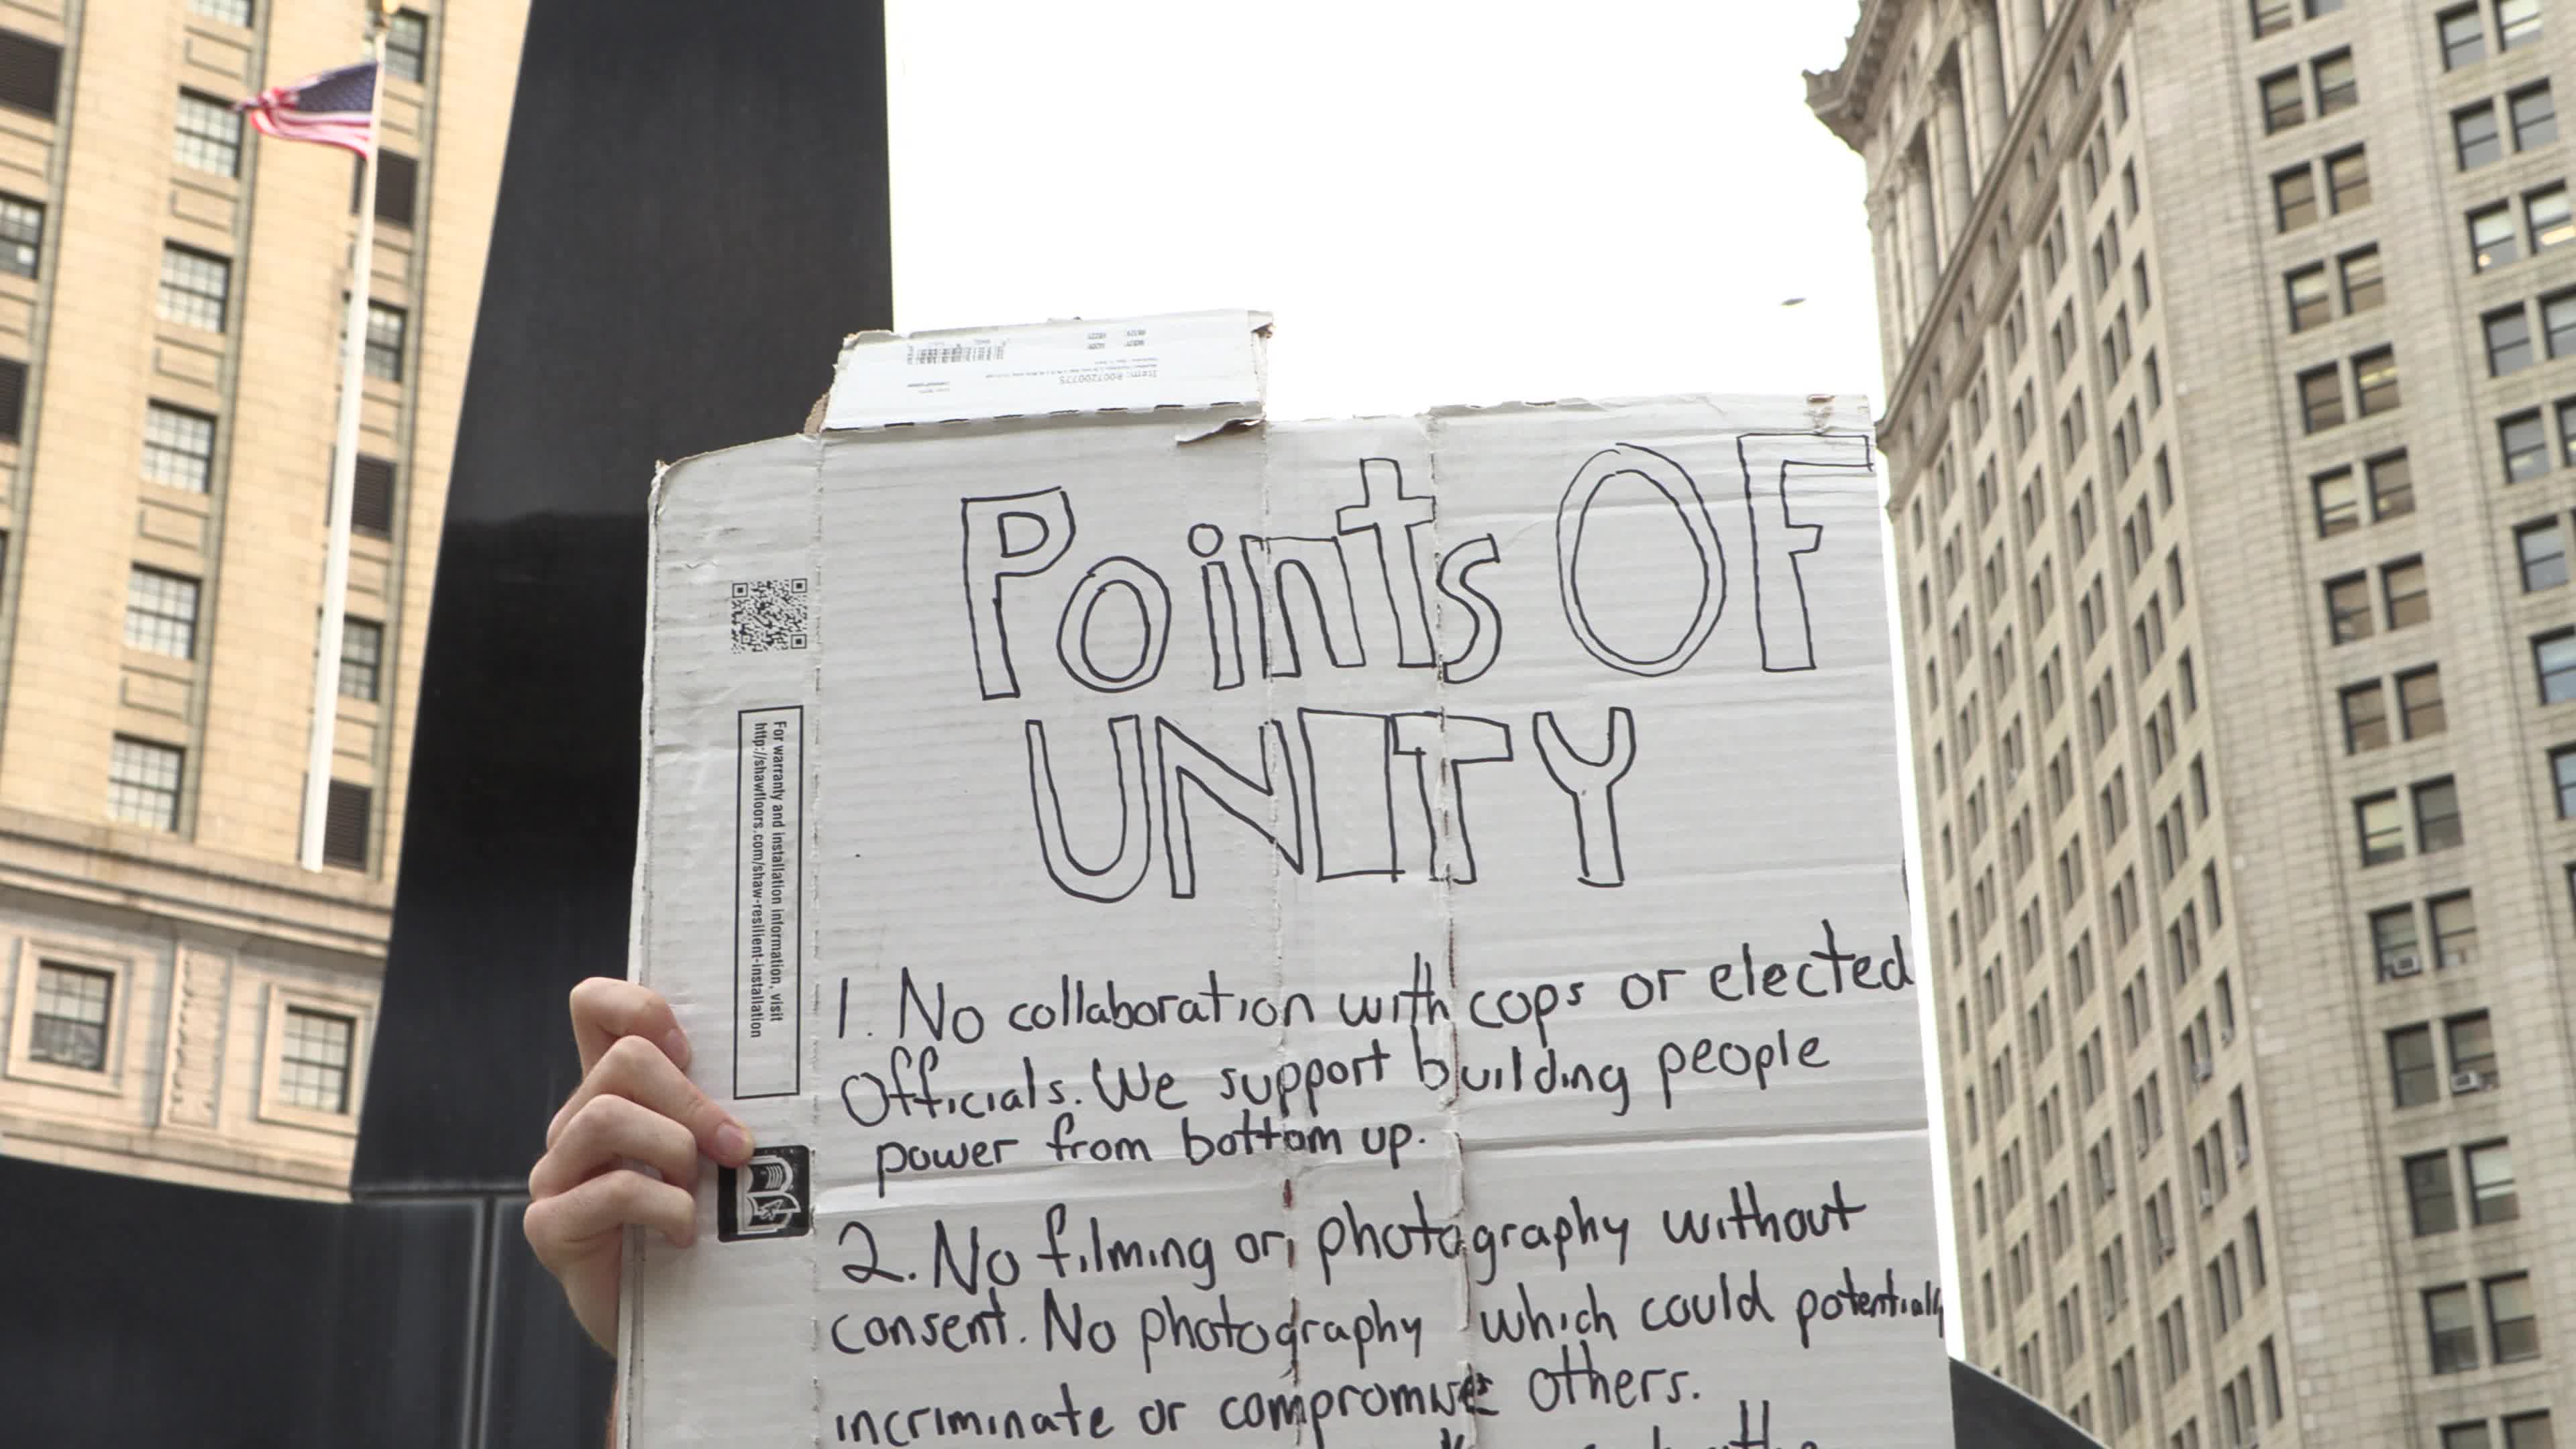 Item: 8007200775
Points OF
UNITY
For warranty and installation information, visit
http://shawfloors.com/shaw-resilient-installation
1. No collaboration with cops or elected
Officials. We support building people
power from bottom up.
2. No filming or photography without
consent. No photography which could potentially
incriminate or compromise others.